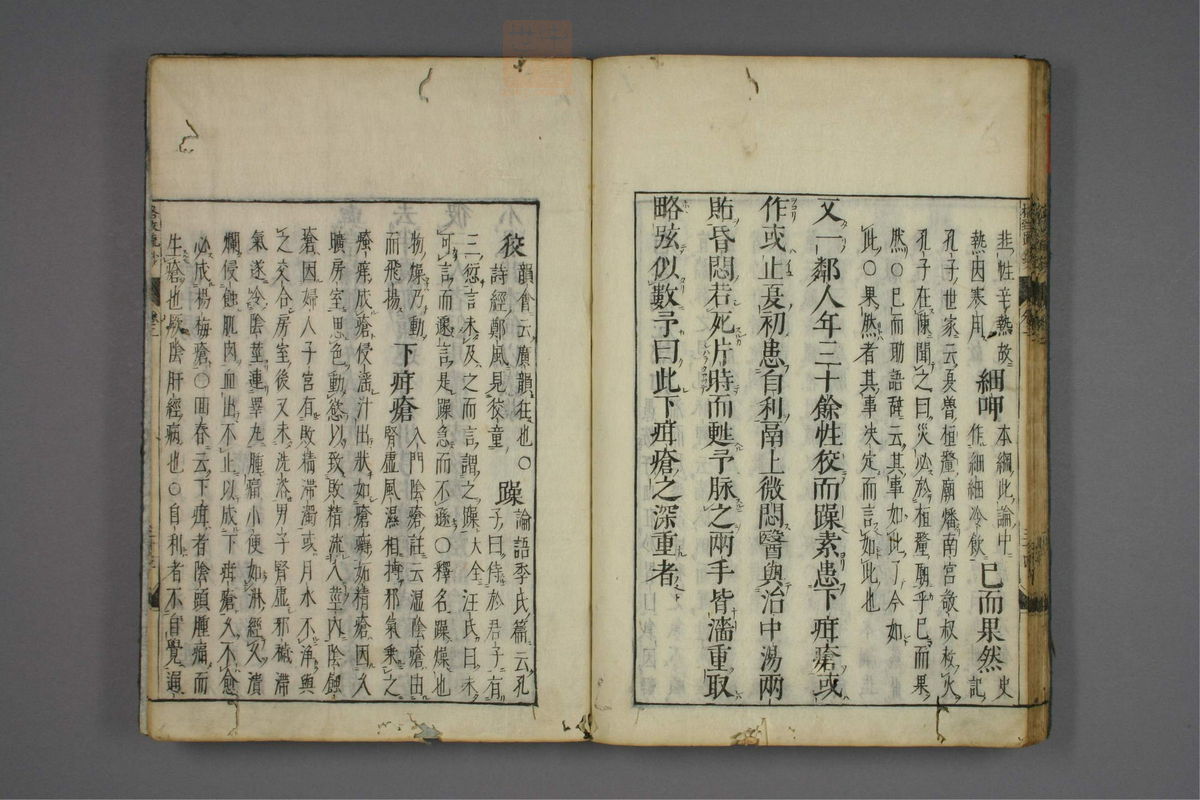 韭性辛熱故
熱因寒用
細呷
本綱此論中
作細細冷飲
已而果然
史記
孔子世家云夏魯桓釐廟燔南宮敬叔救火
孔子在陳聞之曰災必於桓釐廟乎已而果
然○已而助語辭云其事如此了今如
此○果然者其事决定而言如此也
又一鄰人年三十餘性狡而躁素患下疳瘡或
作或止夏初患自利鬲上微悶醫與治中湯兩
貼昏悶若死片時而甦予脉之兩手皆濇重取
略弦似數予曰此下疳瘡之深重者
狡
韻會云廣韻狂也○
詩經鄭風見狡童
躁
論語季氏篇云孔
子曰侍於君子有
三愆言未及之而言謂之躁大全汪氏曰未
可言而遽言是躁急而不遜○釋名躁燥也
物燥乃動
而飛揚
下疳瘡
入門陰瘡註云濕陰瘡由
腎虛風濕相搏邪氣乘之
瘙痒成瘡侵淫汁出狀如瘡癬妬精瘡因久
曠房室思色動慾以致敗精流入莖內陰蝕
瘡因婦人子宮有敗精滯濁或月水不淨與
之交合房室後又未洗滌男子腎虛邪穢滯
氣遂冷陰莖連睪丸腫痛小便如淋經久潰
爛侵蝕肌肉血出不止以成下疳瘡久不愈
必成楊梅瘡○回春云下疳者陰頭腫痛而
生瘡也厥陰肝經病也○自利者不自覺遍